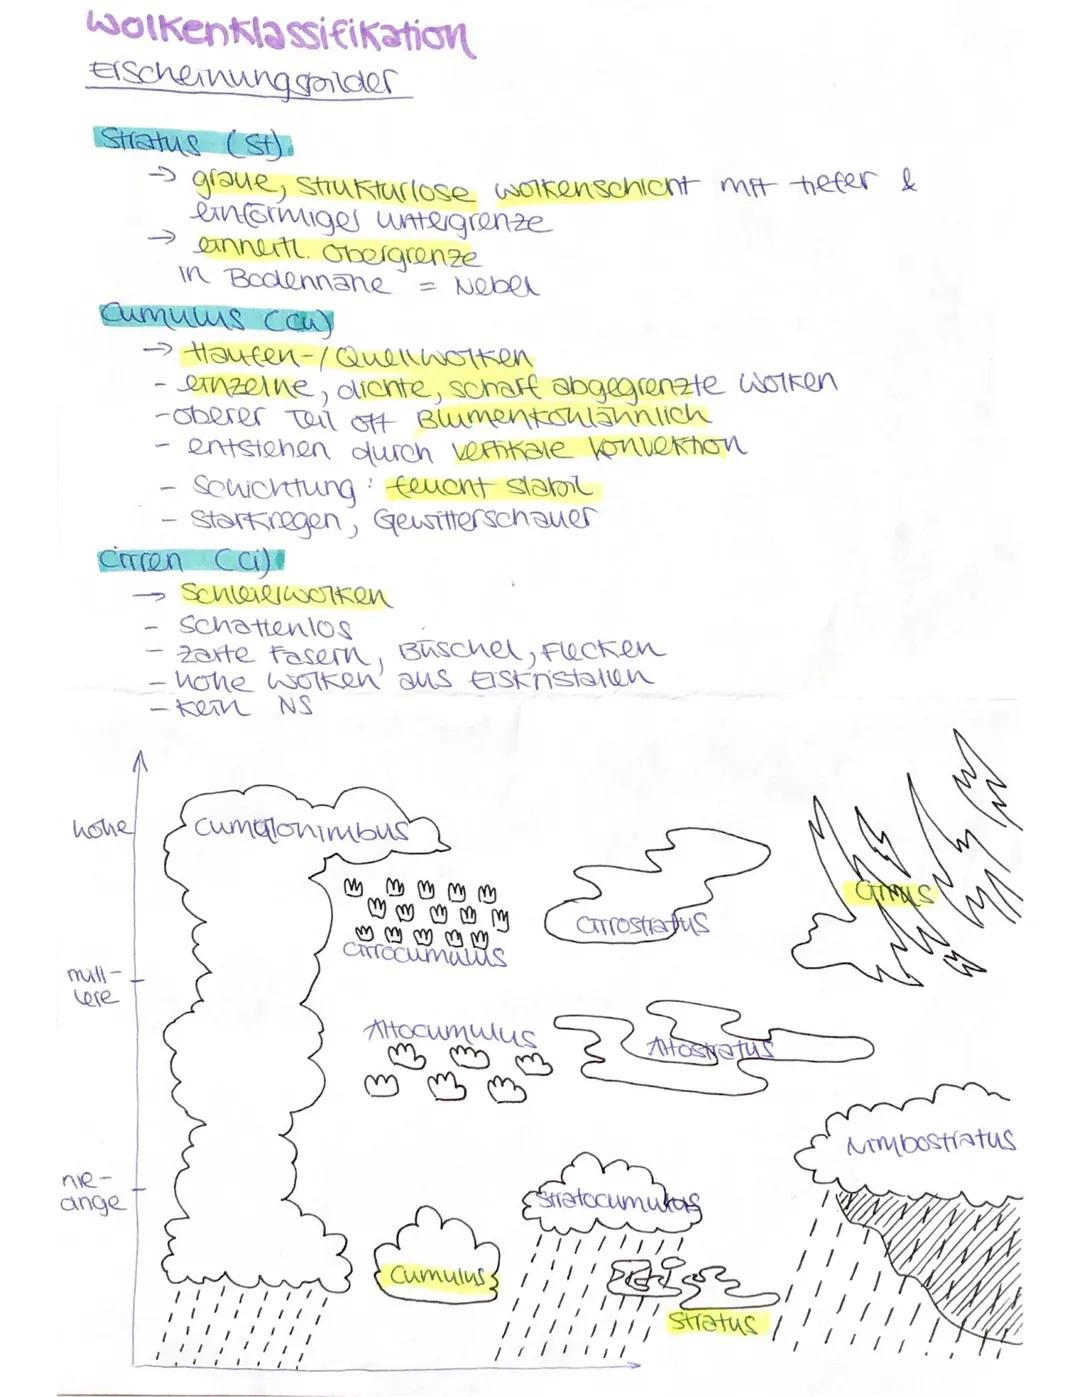 Wolkenklassifikation
Erscheinungsbilder
Stratus (St)
→ graue, strukturlose Wolkenschicht mit tiefer &
einförmiger Untergrenze
→ einheitl. Obergrenze
in Bodennähe = Nebel
Cumulus (Cu)
→ Haufen-/Quellwolken
- einzelne, dichte, scharf abgegrenzte Wolken
- oberer Teil oft Blumenkohlähnlich
- entstehen durch vertikale Konvektion
- Schichtung: feucht stabil
- Starkregen, Gewitterschauer
Cirren (Ci)
→ Schleierwolken
- schattenlos
- zarte Fasern, Büschel, Flecken
- hohe Wolken aus Eiskristallen
- kein NS
hohe
Cumulonimbus
Cirrus
Cirrostratus
Cirrocumulus
mitt-
lere
Altocumulus
Altostratus
Nimbostratus
nie-
Stratocumulus
Cumulus
Stratus